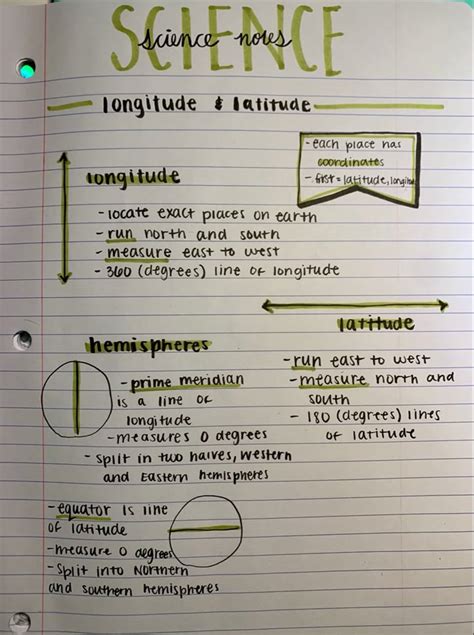 SCIENCE
science notes
longitude & latitude
- each place has
coordinates
- first = latitude, longitude
longitude
- locate exact places on earth
- run north and south
- measure east to west
- 360 (degrees) line of longitude
latitude
- run east to west
- measure north and
south
- 180 (degrees) lines
of latitude
hemispheres
- prime meridian
is a line of
longitude
- measures 0 degrees
- split in two halves, western
and Eastern hemispheres
- equator is line
of latitude
- measure 0 degrees
- Split into Northern
and southern hemispheres